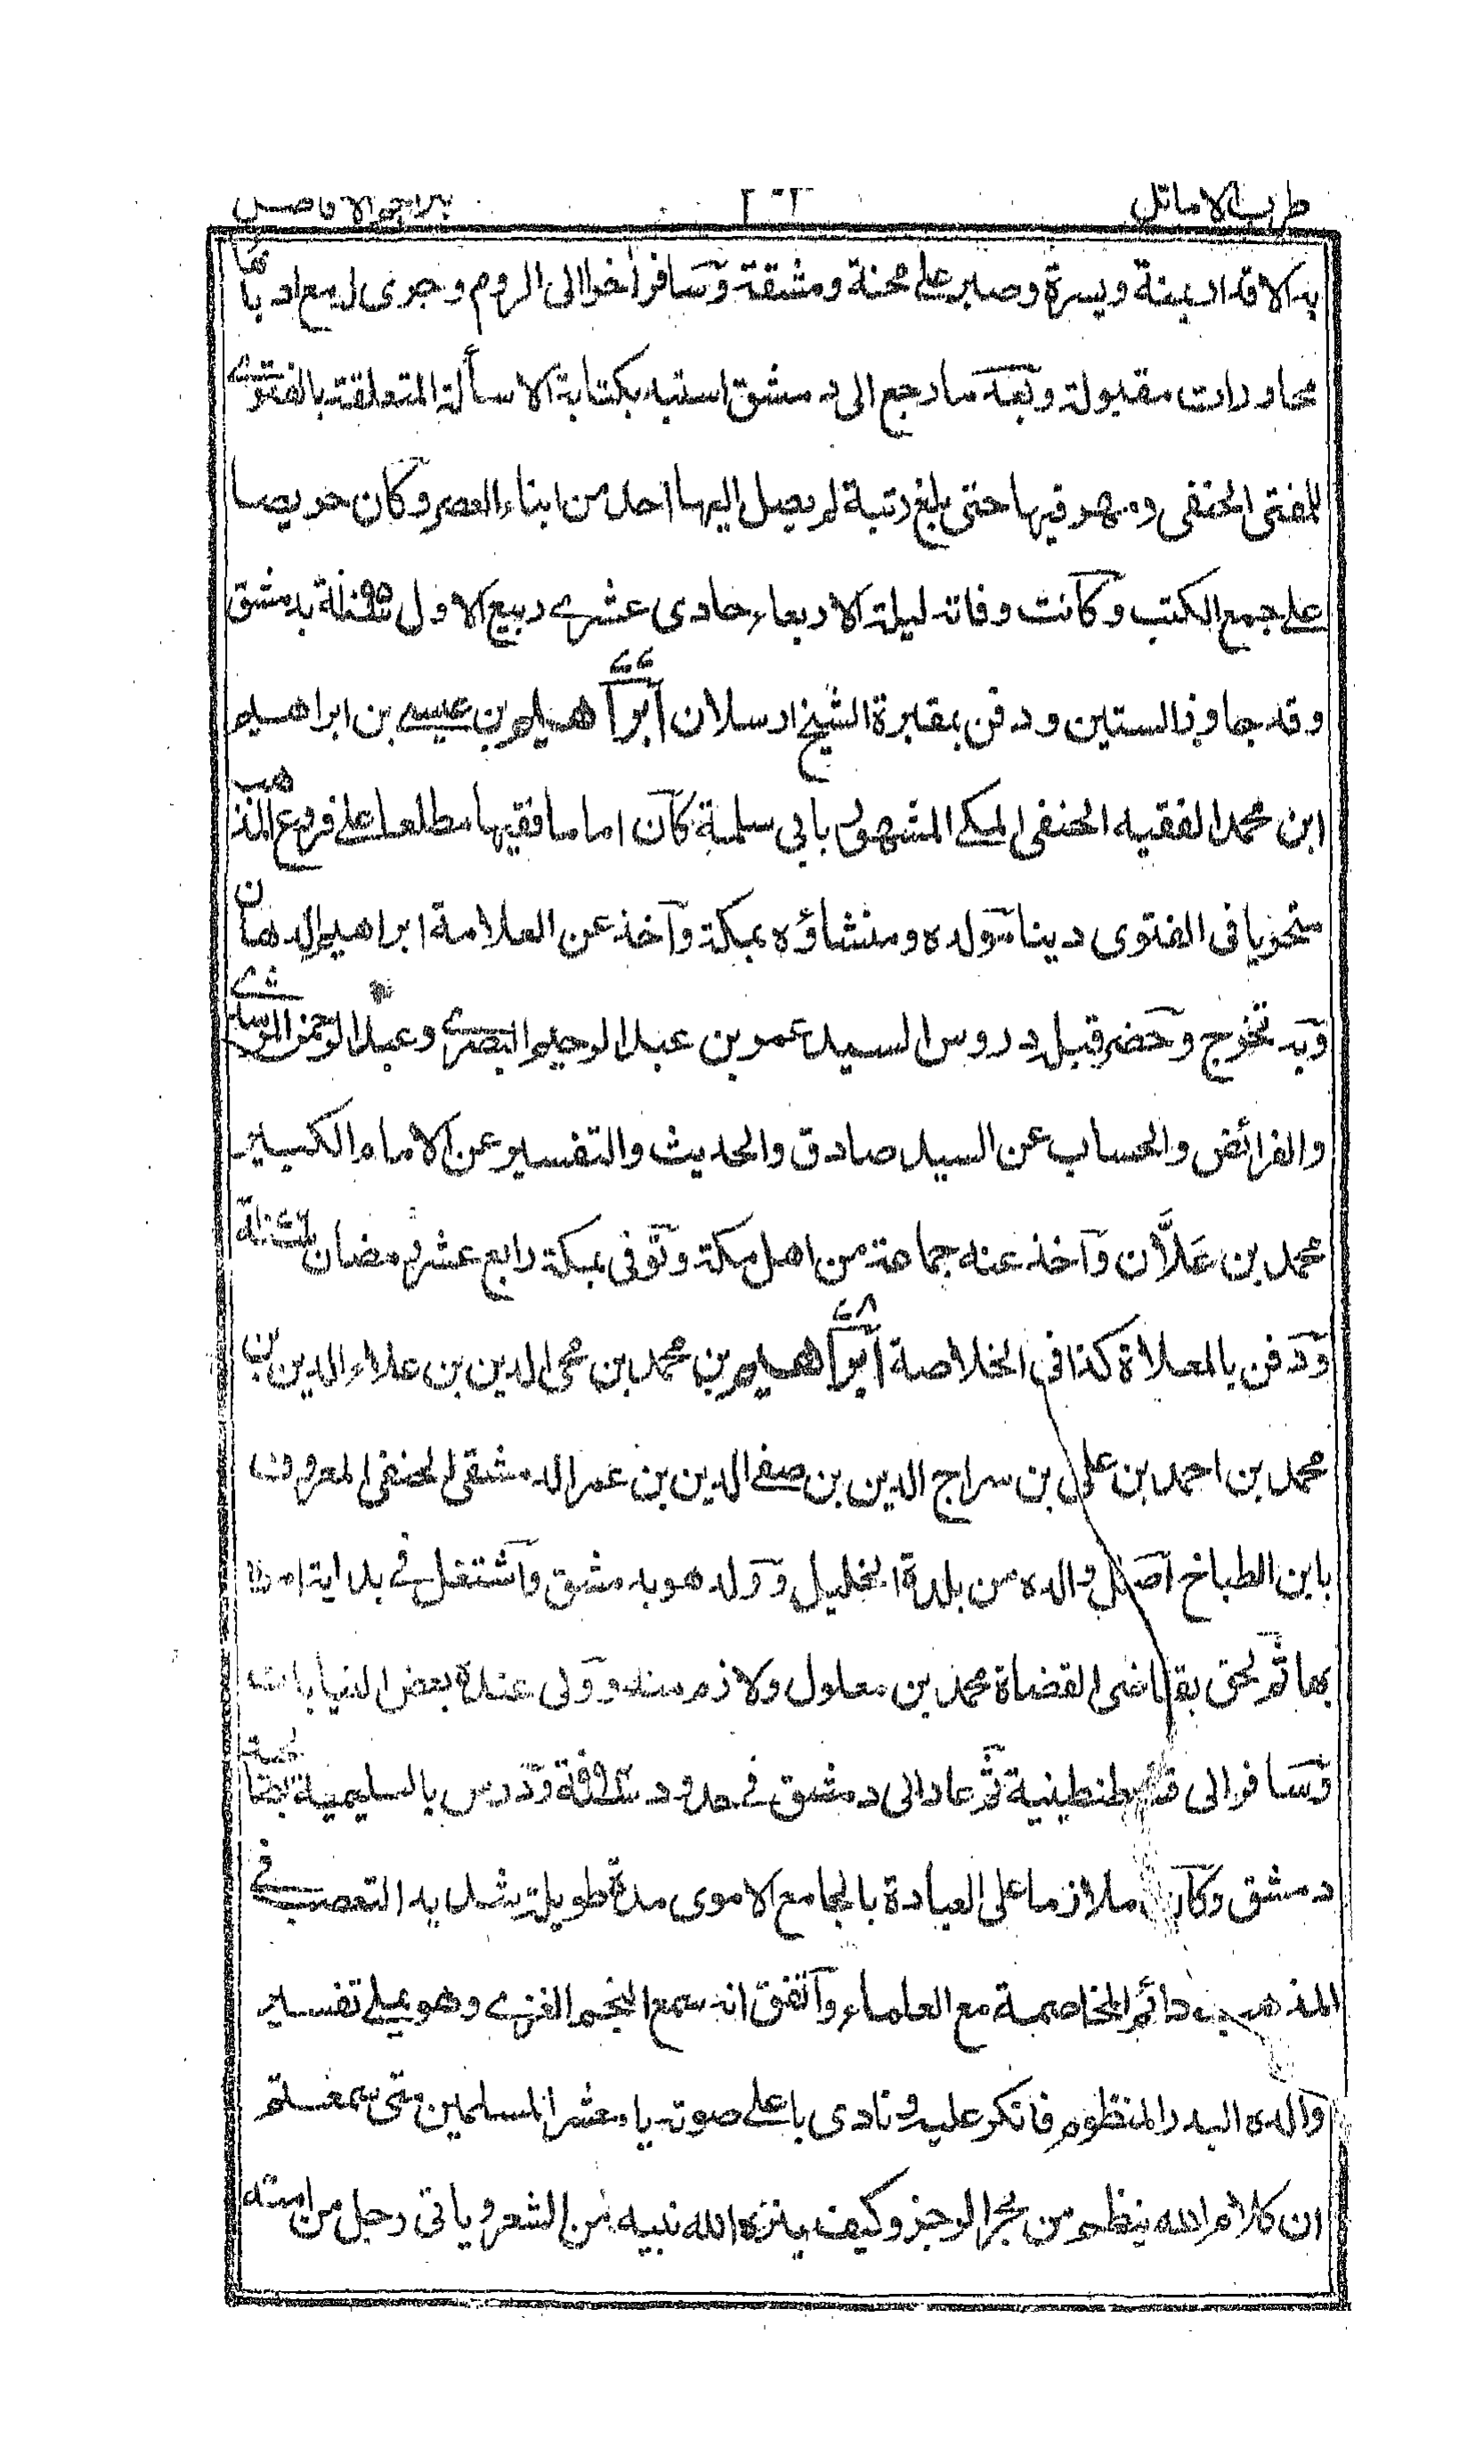 طرب الاماثل ٢٠٢ بتراجم الافاضل
به الاقدار يمنة ويسرة وصبر على محنة ومشقة وسافر اخرا الى الروم وجرى له مع ادبائها
محاورات مقبولة وبعد ما رجع الى دمشق استبد بكتابة الاسألة المتعلقة بالفتوى
للمفتى الحنفى ومهر فيها حتى بلغ رتبة لم يصل اليها احد من ابناء العصر وكان حريصا
على جمع الكتب وكانت وفاته ليلة الاربعاء حادى عشرى ربيع الاول بدمشق
وقد جاوز الستين ودفن بمقبرة الشيخ ارسلان ابراهيم بن عيسى بن ابراهيم
ابن محمد الفقيه الحنفى المكى المشهور بابى سلمة كان اماما فقيها مطلعا على فروع المذهب
متحريا فى الفتوى دينا مولده ومنشاؤه بمكة واخذ عن العلامة ابراهيم الدهان
وبه تخرج وحضر قبله دروس السيد عمر بن عبد الرحيم البصرى وعبد الرحمن المرشدى
والفرائض والحساب عن السيد صادق والحديث والتفسير عن الامام الكبير
محمد بن عَلَّان واخذ عنه جماعة من اهل مكة وتوفى بمكة رابع عشر رمضان
ودفن بالمعلاة كذا فى الخلاصة ابراهيم بن محمد بن محى الدين بن علاء الدين بن
محمد بن احمد بن على بن سراج الدين بن صفى الدين بن عمر الدمشقى الحنفى المعروف
بابن الطباخ اصل والده من بلدة الخليل وولد هو بدمشق واشتغل فى بداية امره
بها ثم لحق بقاضى القضاة محمد بن معلول ولازم منه وولى عنده بعض النيابات
وسافر الى قسطنطينية ثم عاد الى دمشق فى حدود ودرس بالسليمية بصالحية
دمشق وكان ملازما على العبادة بالجامع الاموى مدة طويلة شديد التعصب فى
المذهب دائم المخاصمة مع العلماء واتفق انه سمع النجم الغزى وهو يملى تفسير
والده البدر المنظوم فانكر عليه ونادى باعلى صوته يا معشر المسلمين متى سمعتم
ان كلام الله ينظم من بحر الرجز وكيف ينزه الله نبيه من الشعر وياتى رجل من امته